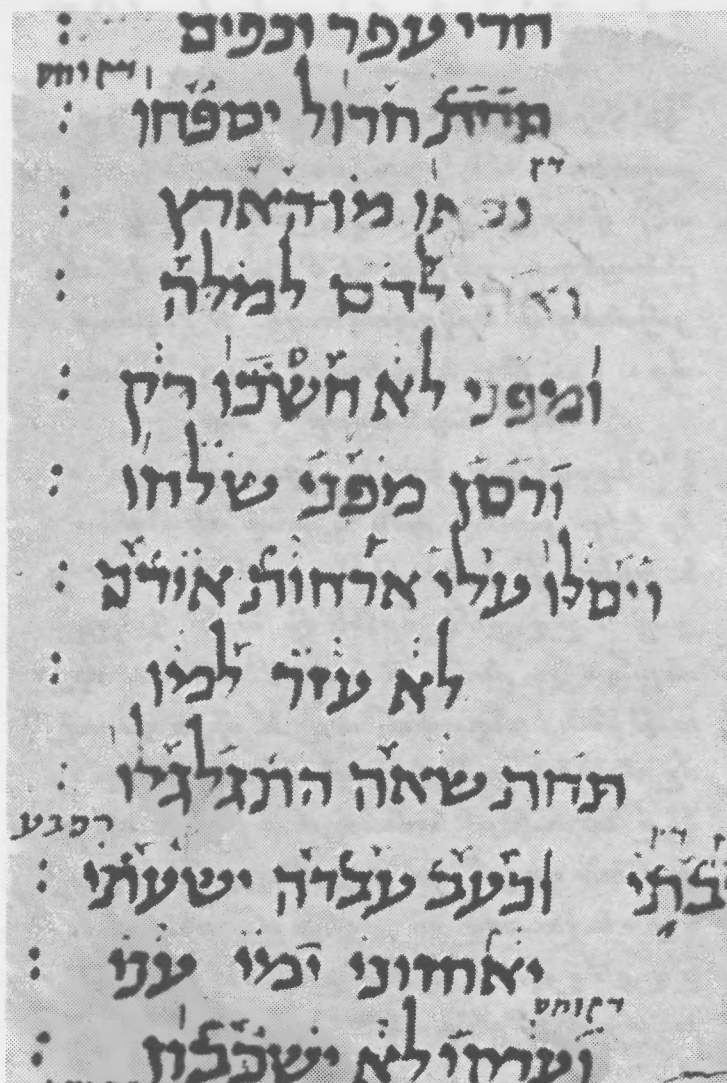 חרי עפר וכפים
תחת חרול יספחו
נכאו מן הארץ
להם למלה
ומפני לא חשכו רק
ורסן מפני שלחו
ויסלו עלי ארחות אידם
לא עזר למו
תחת שאה התגלגלו
וכעב עברה ישעתי
יאחזוני ימי עני
וערקי לא ישכבון